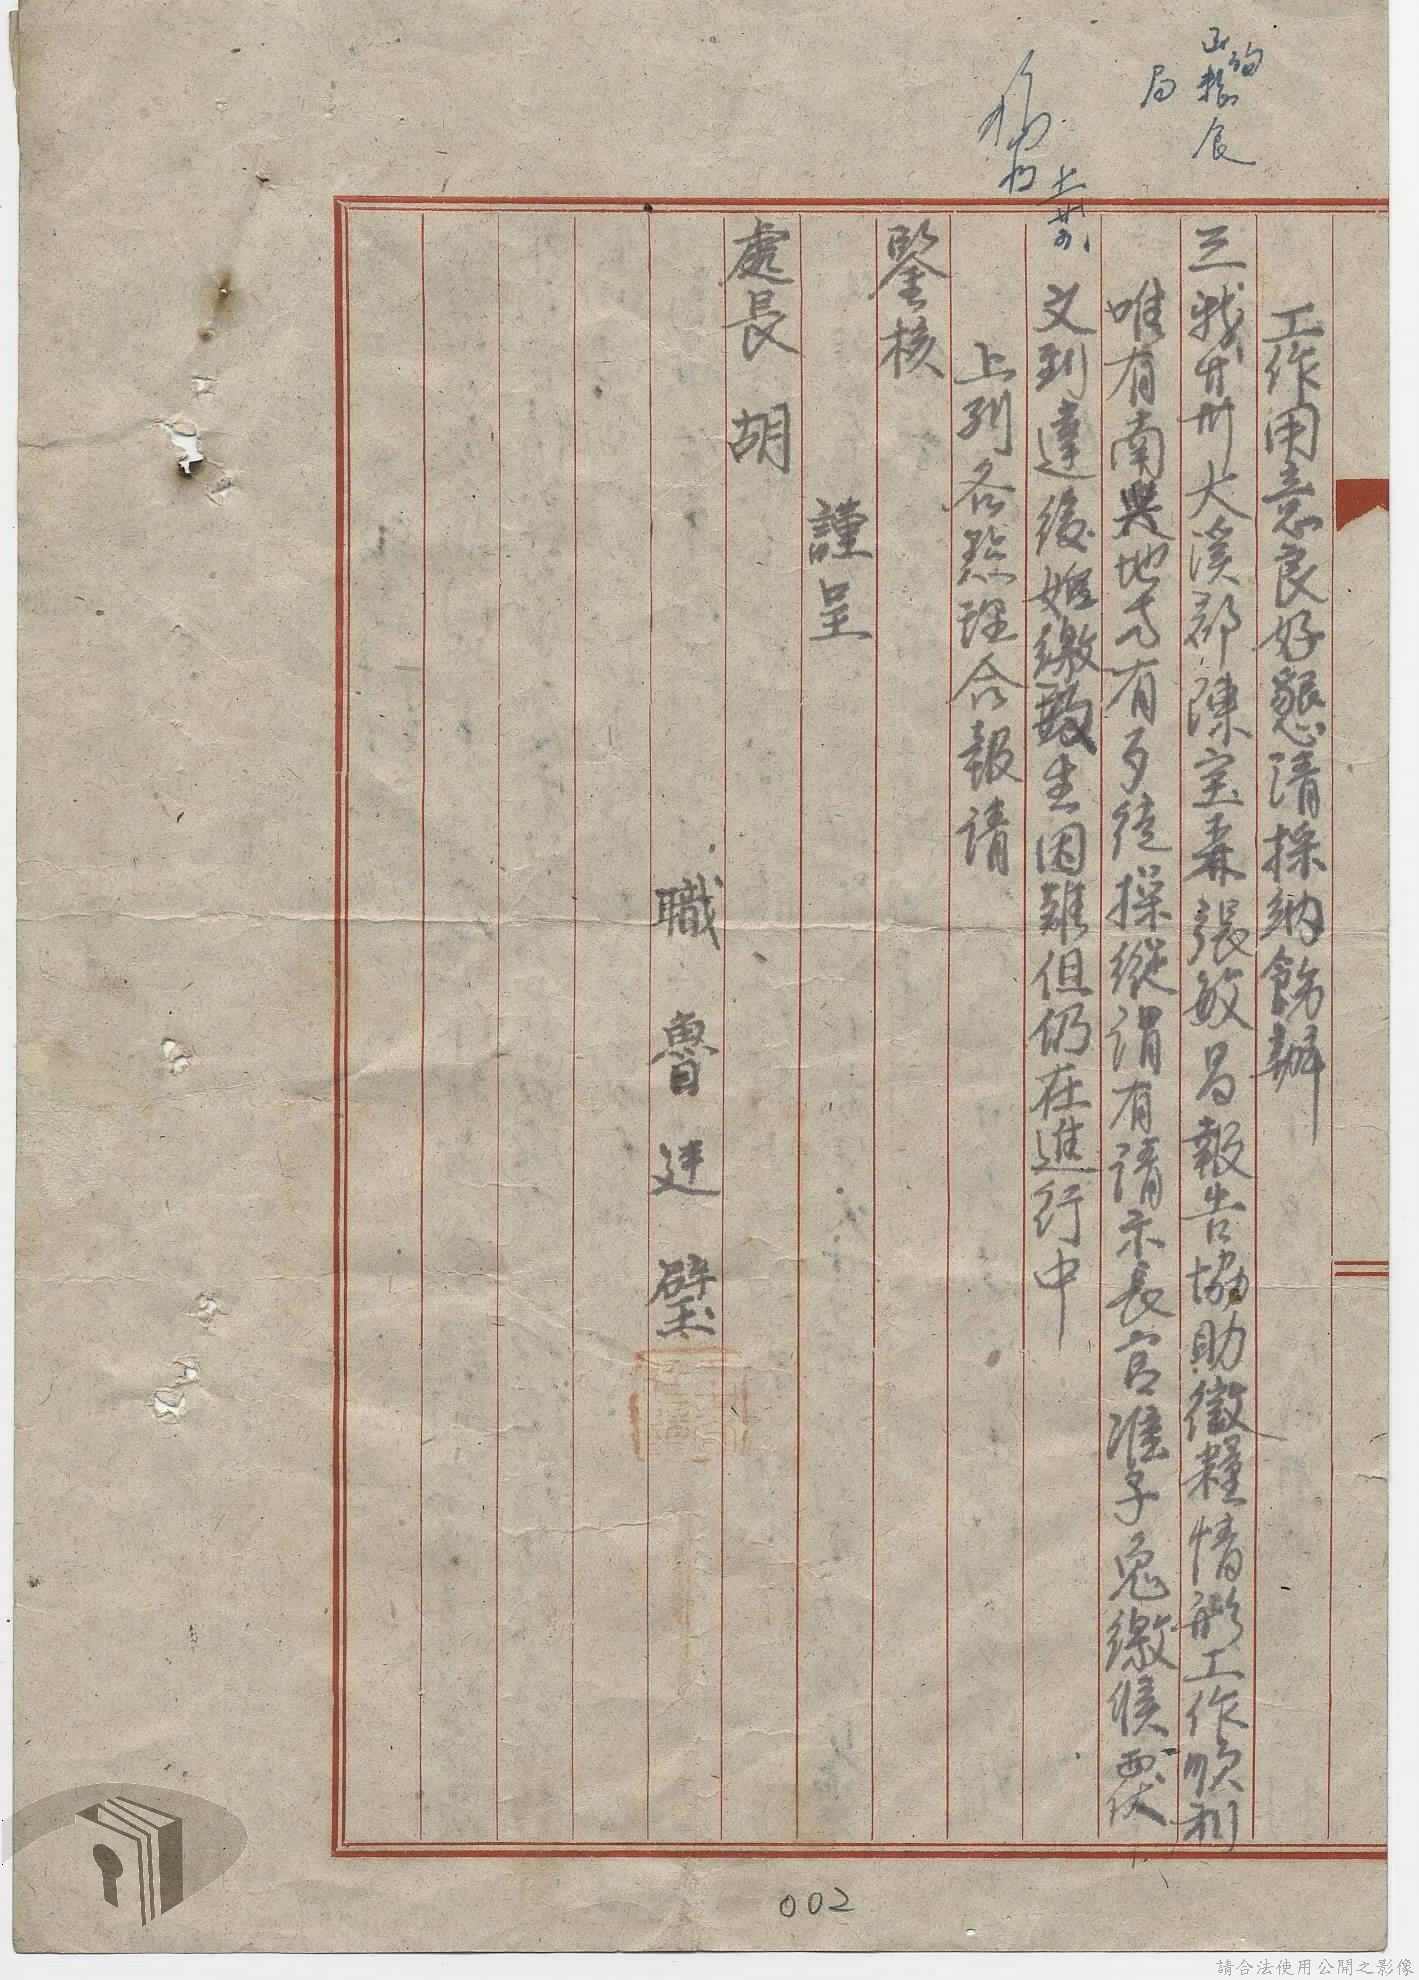 工作用意良好懇請採納飭辦
三、我廿卅大溪郡陳宝森張敏昌報告協助徵糧情形工作順利
唯有南興地方有歹徒操縱謂有請示長官准予免繳候覆
文到達後始繳致生困難但仍在進行中
上列各點理合報請
鑒核
謹呈
處長 胡
職 魯廷璧
函 糧食
局
002
請合法使用公開之影像